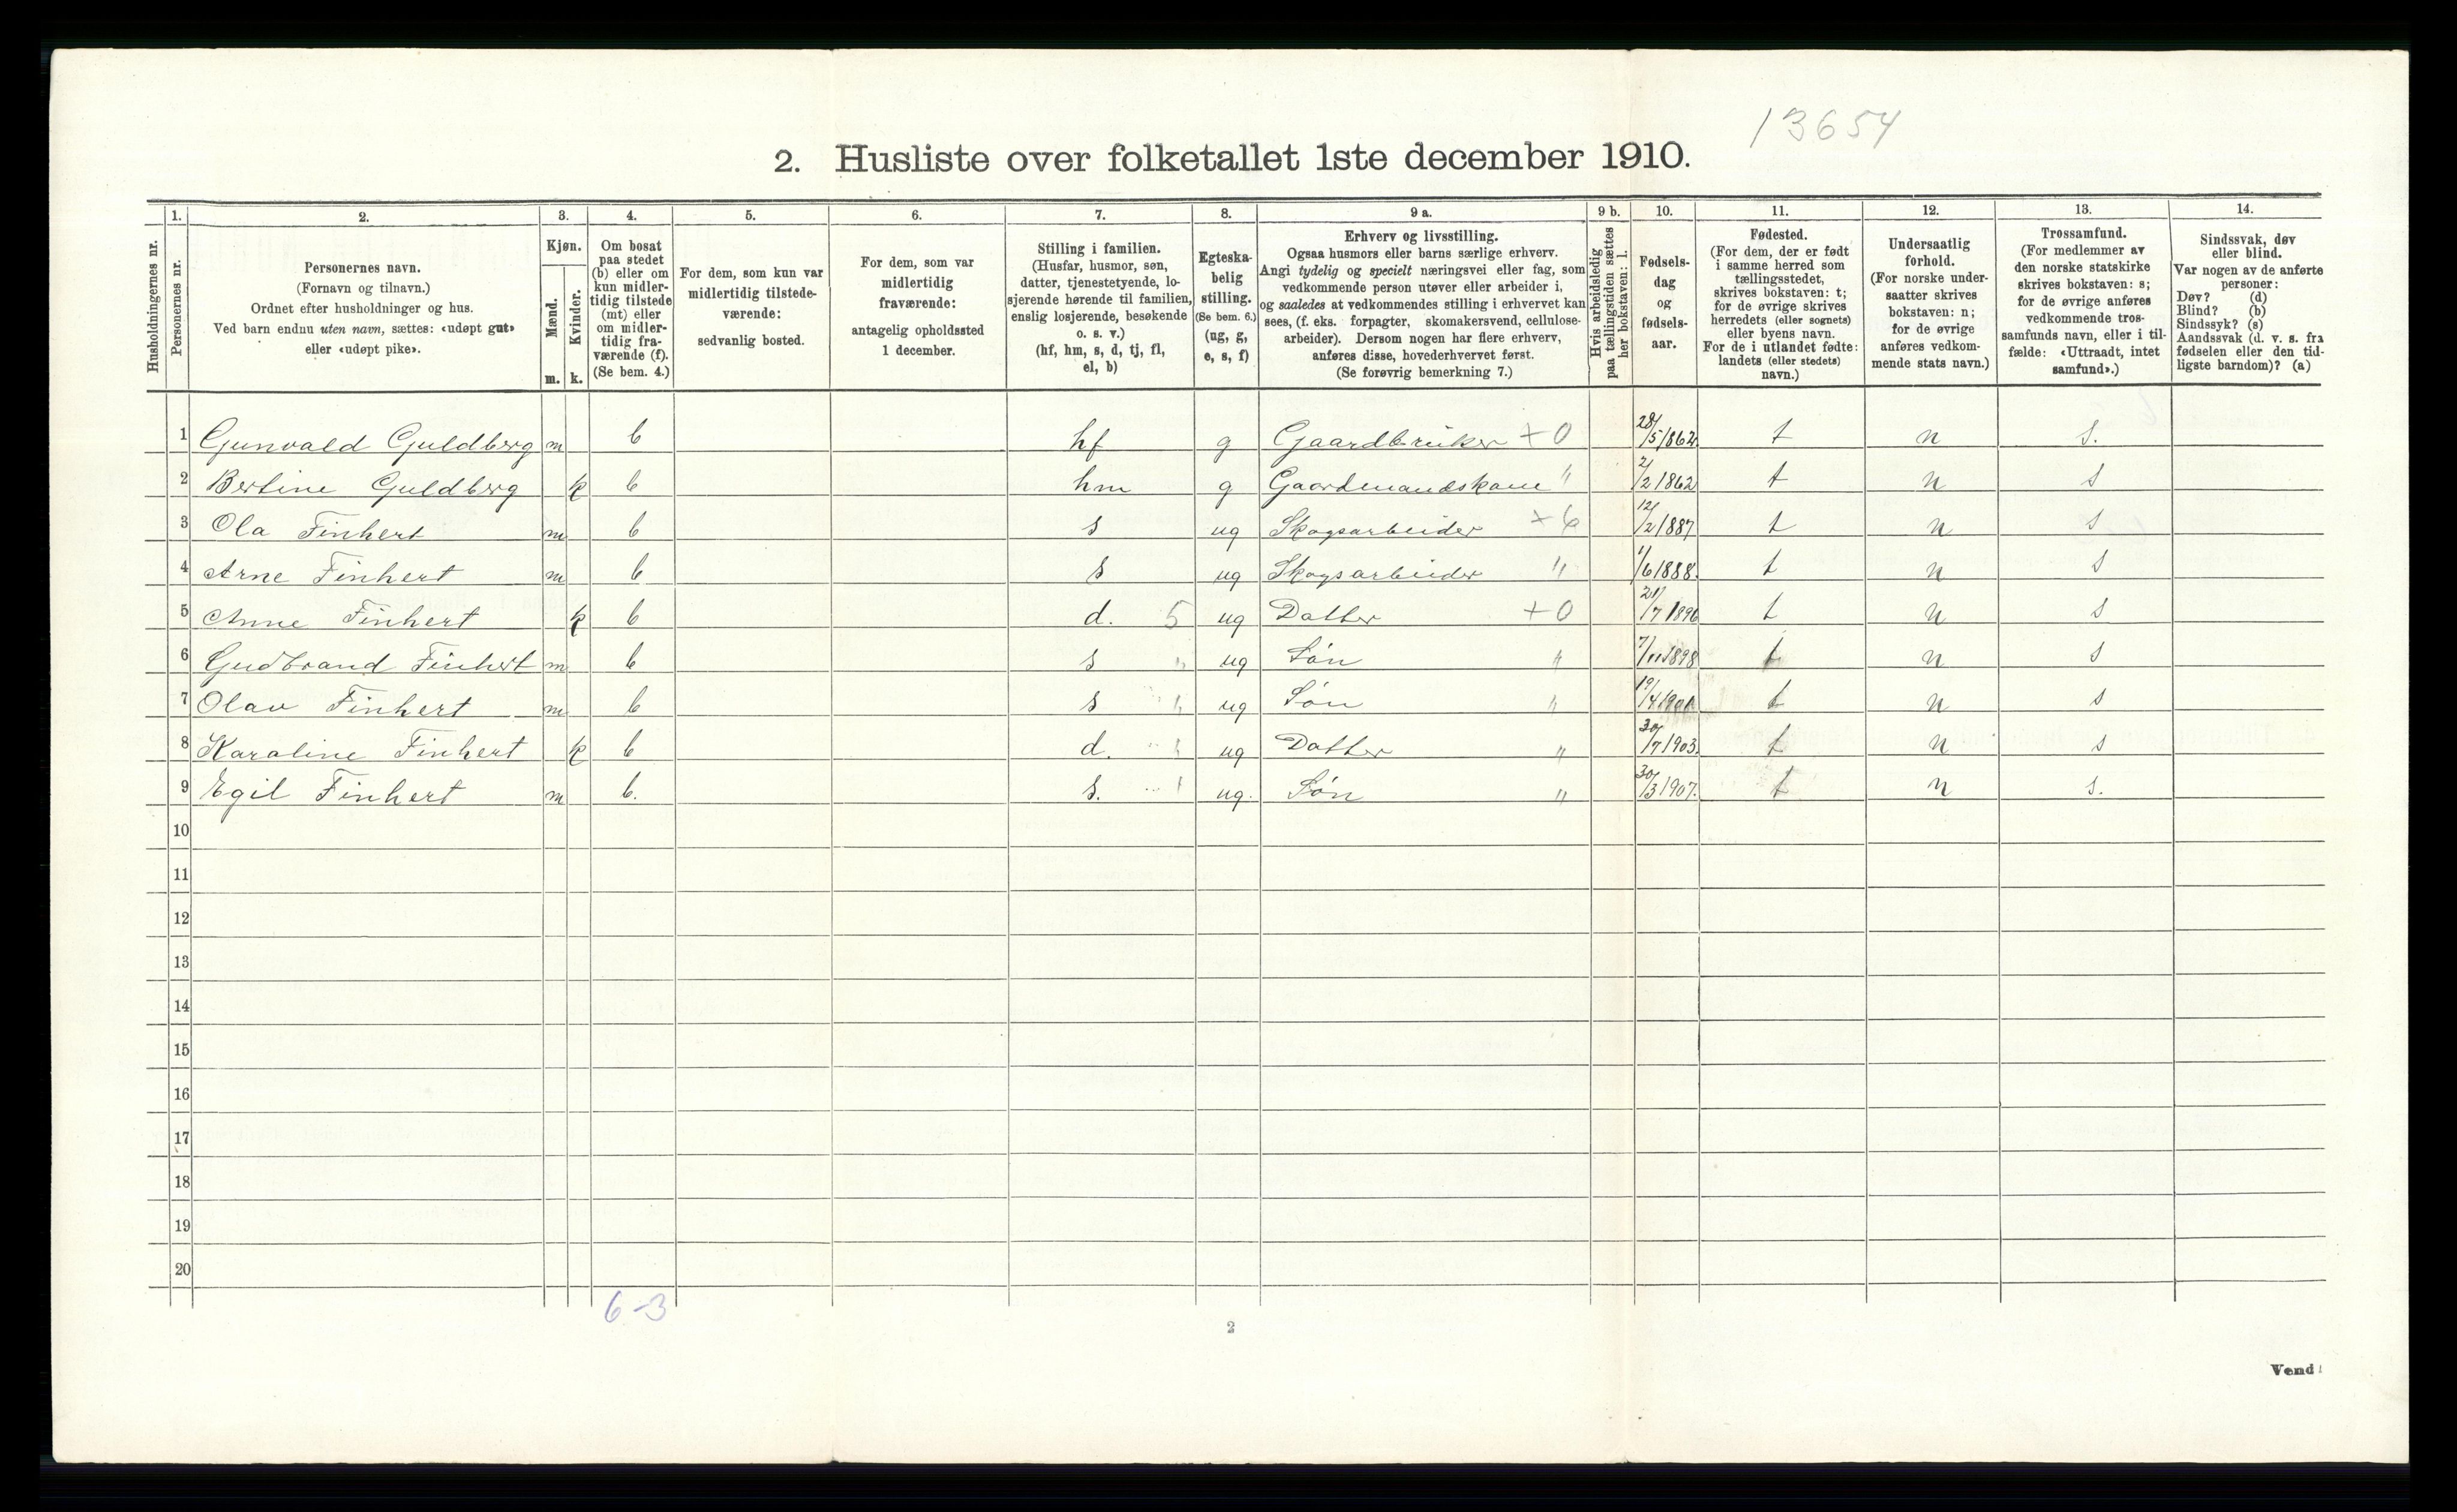 13654
2. Husliste over folketallet 1ste december 1910.
1. 2. 3. 4. 5. 6. 7. 8. 9 a. 9 b. 10. 11. 12. 13. 14.
Husholdningernes nr.
Personernes nr.
Personernes navn.
(Fornavn og tilnavn.)
Ordnet efter husholdninger og hus.
Ved barn endnu uten navn, sættes: «udøpt gut»
eller «udøpt pike».
Kjøn.
Mænd.
m.
Kvinder.
k.
Om bosat
paa stedet
(b) eller om
kun midler-
tidig tilstede
(mt) eller
om midler-
tidig fra-
værende (f).
(Se bem. 4.)
For dem, som kun var
midlertidig tilstede-
værende:
sedvanlig bosted.
For dem, som var
midlertidig
fraværende:
antagelig opholdssted
1 december.
Stilling i familien.
(Husfar, husmor, søn,
datter, tjenestetyende, lo-
sjerende hørende til familien,
enslig losjerende, besøkende
o. s. v.)
(hf, hm, s, d, tj, fl,
el, b)
Egteska-
belig
stilling.
(Se bem. 6.)
(ug, g,
e, s, f)
Erhverv og livsstilling.
Ogsaa husmors eller barns særlige erhverv.
Angi tydelig og specielt næringsvei eller fag, som
vedkommende person utøver eller arbeider i,
og saaledes at vedkommendes stilling i erhvervet kan
sees, (f. eks. forpagter, skomakersvend, cellulose-
arbeider). Dersom nogen har flere erhverv,
anføres disse, hovederhvervet først.
(Se forøvrig bemerkning 7.)
Hvis arbeidsledig
paa tællingstiden sættes
her bokstaven: l.
Fødsels-
dag
og
fødsels-
aar.
Fødested.
(For dem, der er født
i samme herred som
tællingsstedet,
skrives bokstaven: t;
for de øvrige skrives
herredets (eller sognets)
eller byens navn.
For de i utlandet fødte:
landets (eller stedets)
navn.)
Undersaatlig
forhold.
(For norske under-
saatter skrives
bokstaven: n;
for de øvrige
anføres vedkom-
mende stats navn.)
Trossamfund.
(For medlemmer av
den norske statskirke
skrives bokstaven: s;
for de øvrige anføres
vedkommende tros-
samfunds navn, eller i til-
fælde: «Uttraadt, intet
samfund».)
Sindssvak, døv
eller blind.
Var nogen av de anførte
personer:
Døv? (d)
Blind? (b)
Sindssyk? (s)
Aandssvak (d. v. s. fra
fødselen eller den tid-
ligste barndom)? (a)
1 Gunvald Guldberg m b hf g Gaardbruker +0 28/5 1862 t n s.
2 Bertine Guldberg k b hm g Gaardmandskone " 2/2 1862 t n s
3 Ola Finhert m b s ug Skogsarbeider +6 12/2 1887 t n s
4 Arne Finhert m b s ug Skogsarbeider " 1/6 1888 t n s
5 Anne Finhert k b d. 5 ug Datter +0 21/7 1896 t n s
6 Gudbrand Finhert m b s " ug Søn " 7/11 1898 t n s
7 Olav Finhert m b s " ug Søn " 19/4 1901 t n s
8 Karoline Finhert k b d. " ug Datter " 30/7 1903. t n s
9 Egil Finhert m b. s. ug. Søn " 30/3 1907. t n s.
10
11
12
13
14
15
16
17
18
19
20
6-3
2
Vend!